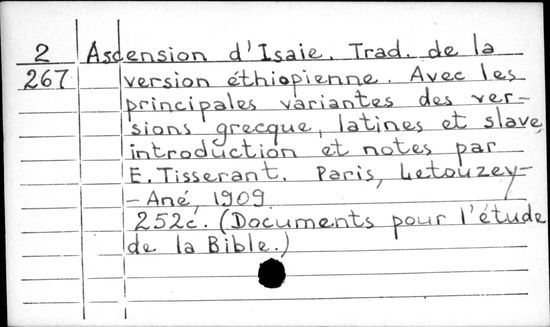 2 Ascension d'Isaie. Trad. de la
267 version éthiopienne. Avec les
principales variantes des ver-
sions grecque, latines et slave,
introduction et notes par
E. Tisserant. Paris, Letouzey-
- Ané, 1909.
252c. (Documents pour l'étude
de la Bible.)